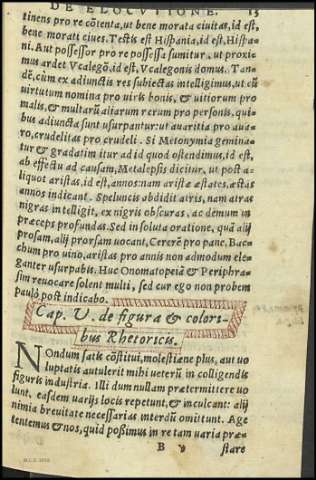 DE ELOCVTIONE. 13
tinens pro re cõtenta, ut bene morata ciuitas, id est,
bene morati ciues. Testis est Hispania, id est, Hispa-
ni. Aut possessor pro re possessa sumitur, ut proxi-
mus ardet Vcalegõ, id est, Vcalegonis domus. Tan-
dẽ, cùm ex adiunctis res subiectas intelligimus, ut cũ
uirtutum nomina pro uiris bonis, & uitiorum pro
malis, & multarũ aliarum rerum pro personis, qui-
bus adiuncta sunt usurpantur: ut auaritia pro aua-
ro, crudelitas pro crudeli. Si Metonymia gemina-
tur & gradatim itur ad id quod ostendimus, id est,
ab effectu ad causam, Metalepsis dicitur, ut post a-
liquot aristas, id est, annos: nam aristæ æstates, æstas
annos indicant. Speluncis abdidit atris, nam atras
nigras intelligit, ex nigris obscuras, ac demum in
præceps profundas. Sed in soluta oratione, quã alij
prosam, alij prorsam uocant, Cererẽ pro pane, Bac-
chum pro uino, aristas pro annis non admodum ele-
ganter usurpabis. Huc Onomatopeia & Periphra-
sim reuocare solent multi, sed cur ego non probem
paulò post indicabo.
Cap. V. de figura & colori-
bus Rhetoricis.
NOndum satis cõstitui, molestiẽne plus, aut uo
luptatis autulerit mihi ueterũ in colligendis
figuris industria. Illi dum nullam prætermittere uo
lunt, easdem uarijs locis repetunt, & inculcant: alij
nimia breuitate necessarias interdũ omitunt. Age
tentemus & nos, quid poßimus in re tam uaria præ-
B v stare